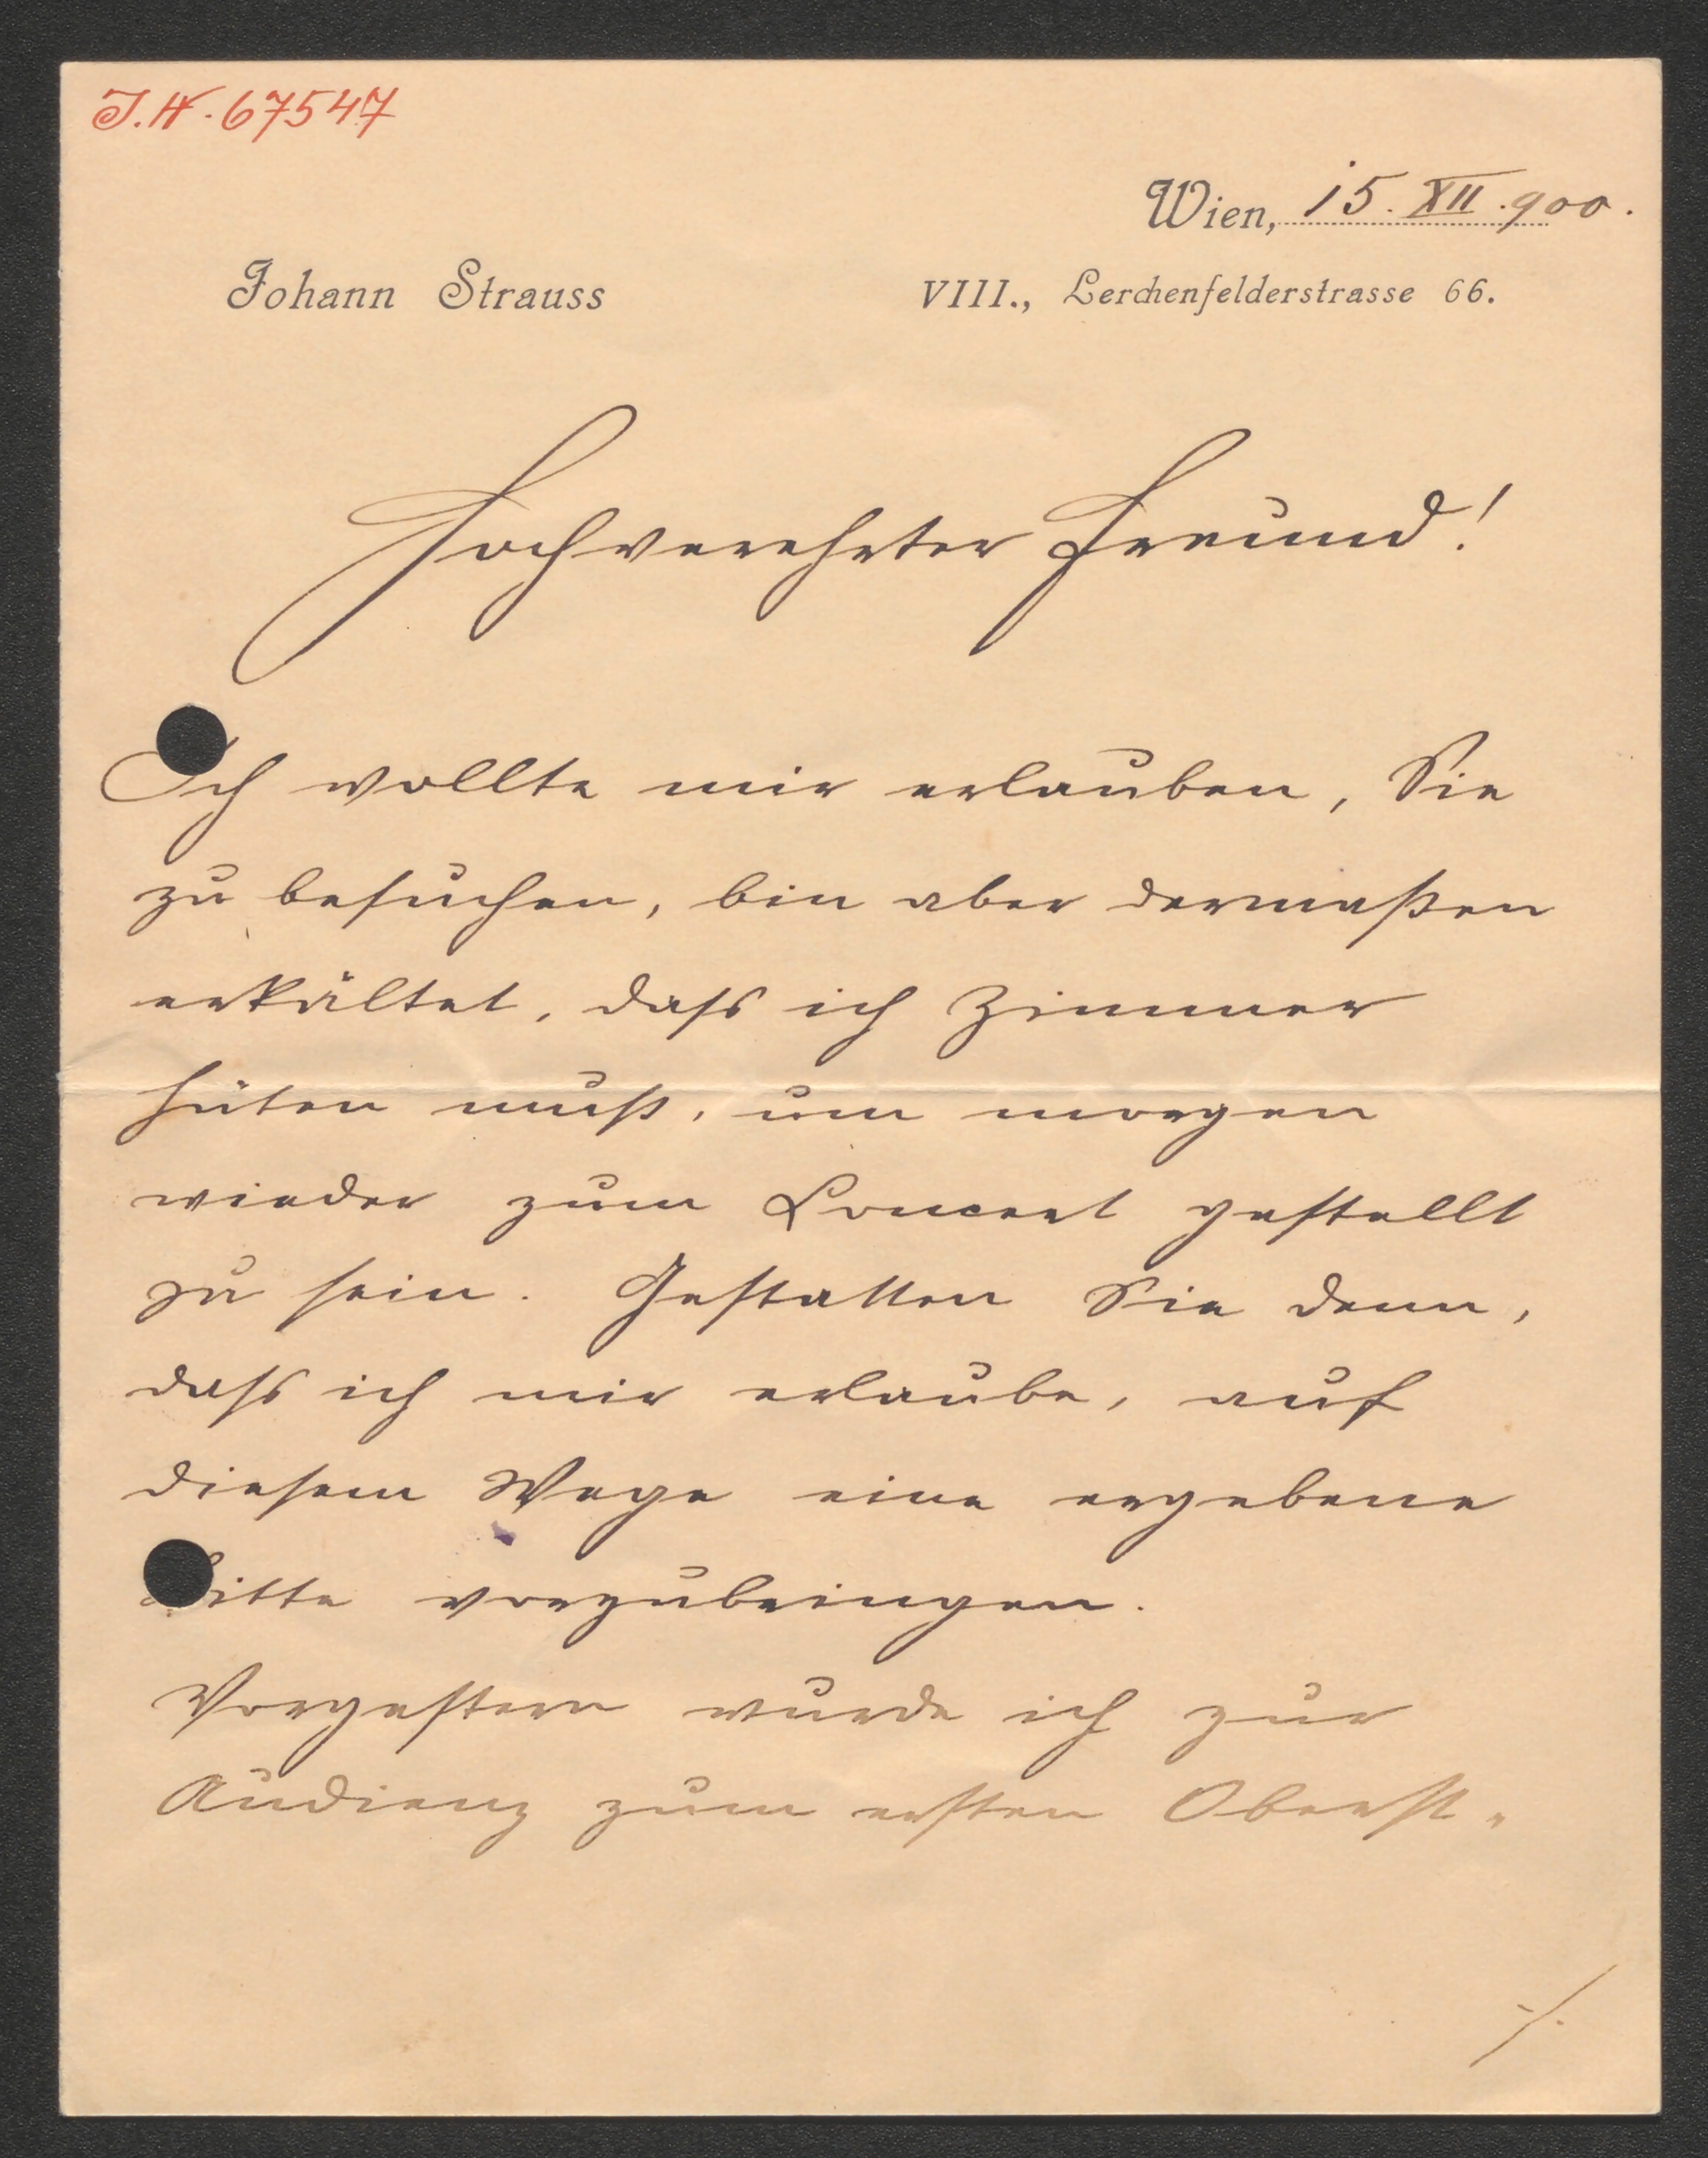 J.N. 67547
Wien, 15. XII. 900.
Johann Strauss VIII., Lerchenfelderstrasse 66.
Hochverehrter Freund!
Ich wollte mir erlauben, Sie
zu besuchen, bin aber dermaßen
erkältet, dass ich Zimmer
hüten muß, um morgen
wieder zum Concert gestellt
zu sein. Gestatten Sie denn,
dass ich mir erlaube, auf
diesem Wege eine ergebene
Bitte vorzubringen.
Vorgestern wurde ich zur
Audienz zum ersten Oberst-
./.